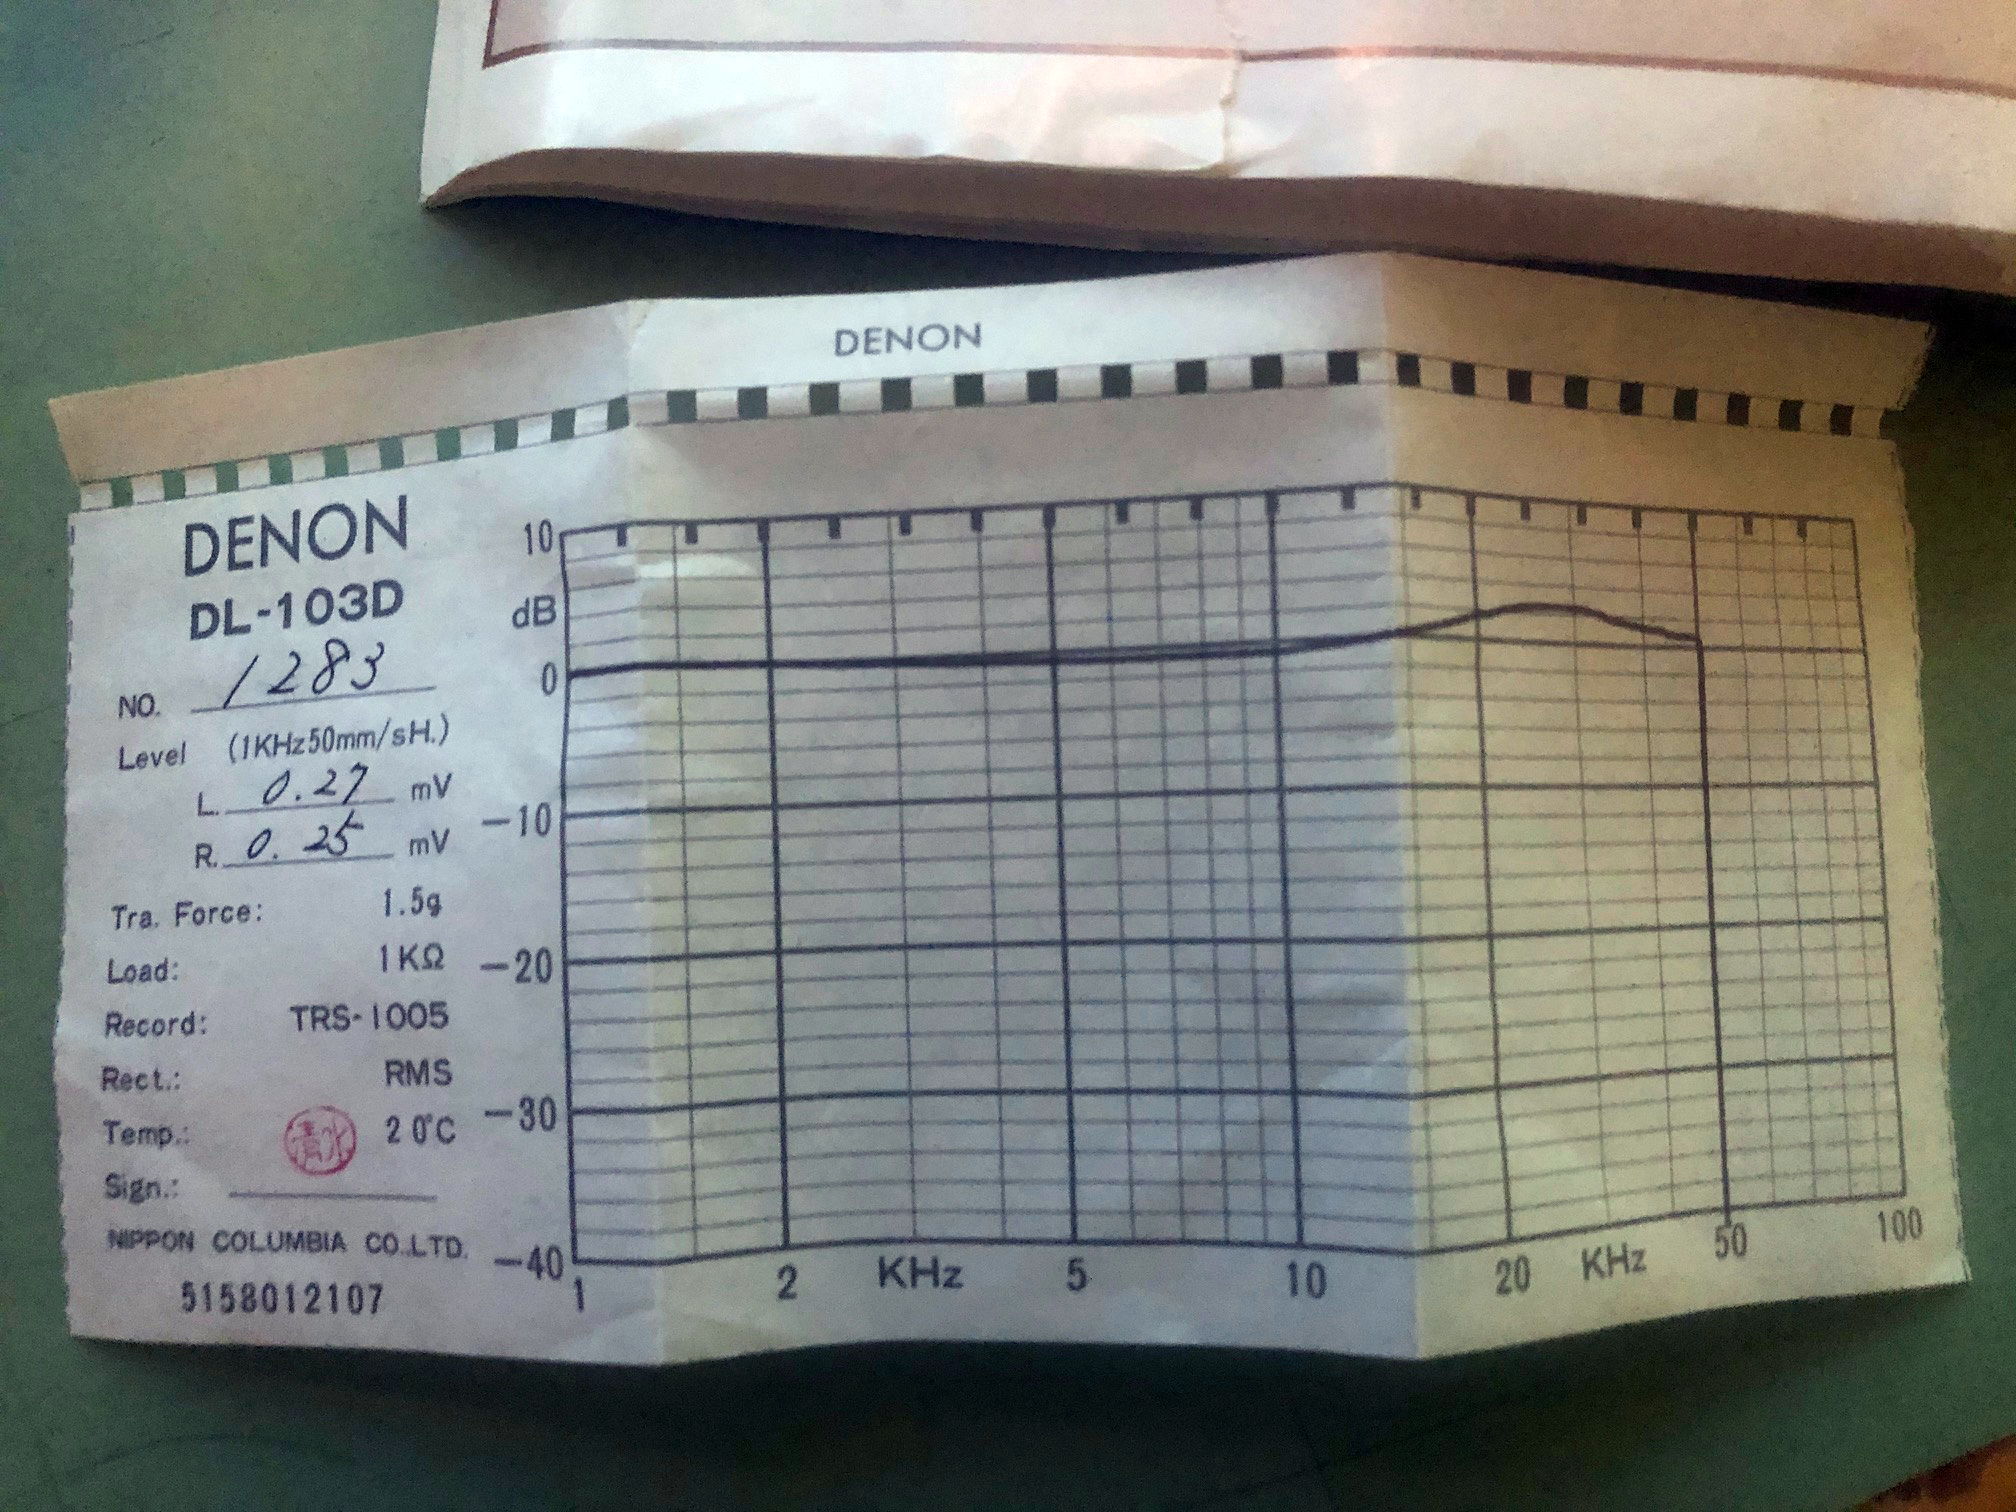 DENON
DENON
DL-103D
NO. 1283
Level (1KHz50mm/sH.)
L. 0.27 mV
R. 0.25 mV
Tra. Force: 1.5g
Load: 1KΩ
Record: TRS-1005
Rect.: RMS
Temp.: 20°C
清水
Sign.:
NIPPON COLUMBIA CO.LTD.
5158012107
10
dB
0
-10
-20
-30
-40
1 2 KHz 5 10 20 KHz 50 100